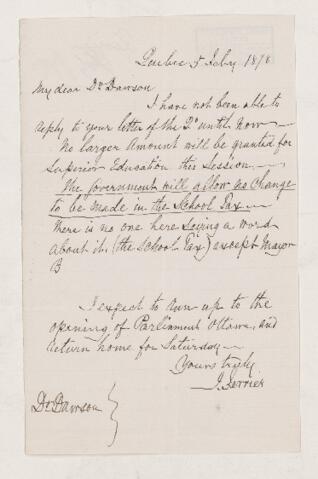 Quebec 5 Feby 1878
My dear Dr Dawson
I have not been able to
reply to your letter of the 2d until now
No larger amount will be granted for
Superior Education this Session
The Government will allow no Change
to be made in the School Tax
There is no one here saying a word
about it (the School Tax) except Mayor
B
I expect to run up to the
opening of Parliament Ottawa and
return home for Saturday
Yours truly
J. Ferrier
Dr Dawson